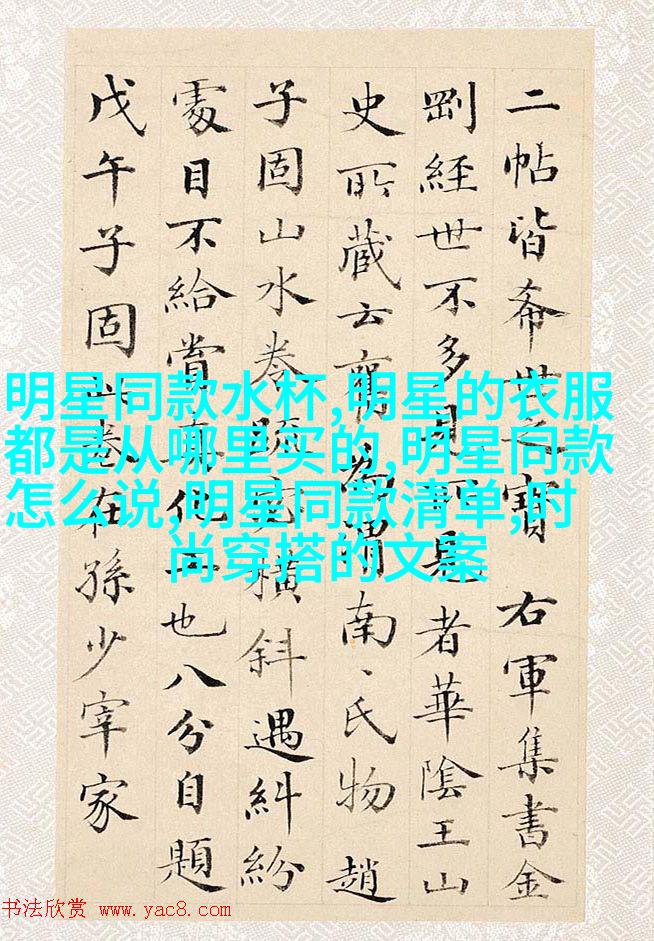 二帖皆希世之寶 右軍集書金
剛經世不多見 是者華陰王山
史所藏云舊為渭南〻氏物趙
子固山水卷 橫斜遇糾紛
處目不給賞真 也八分自題
戊午子固此卷在孫少宰家
明星同款水杯,明星的衣服
都是从哪里买的,明星同款
怎么说,明星同款清单,时
尚穿搭的文案
书法欣赏 www.yac8.com